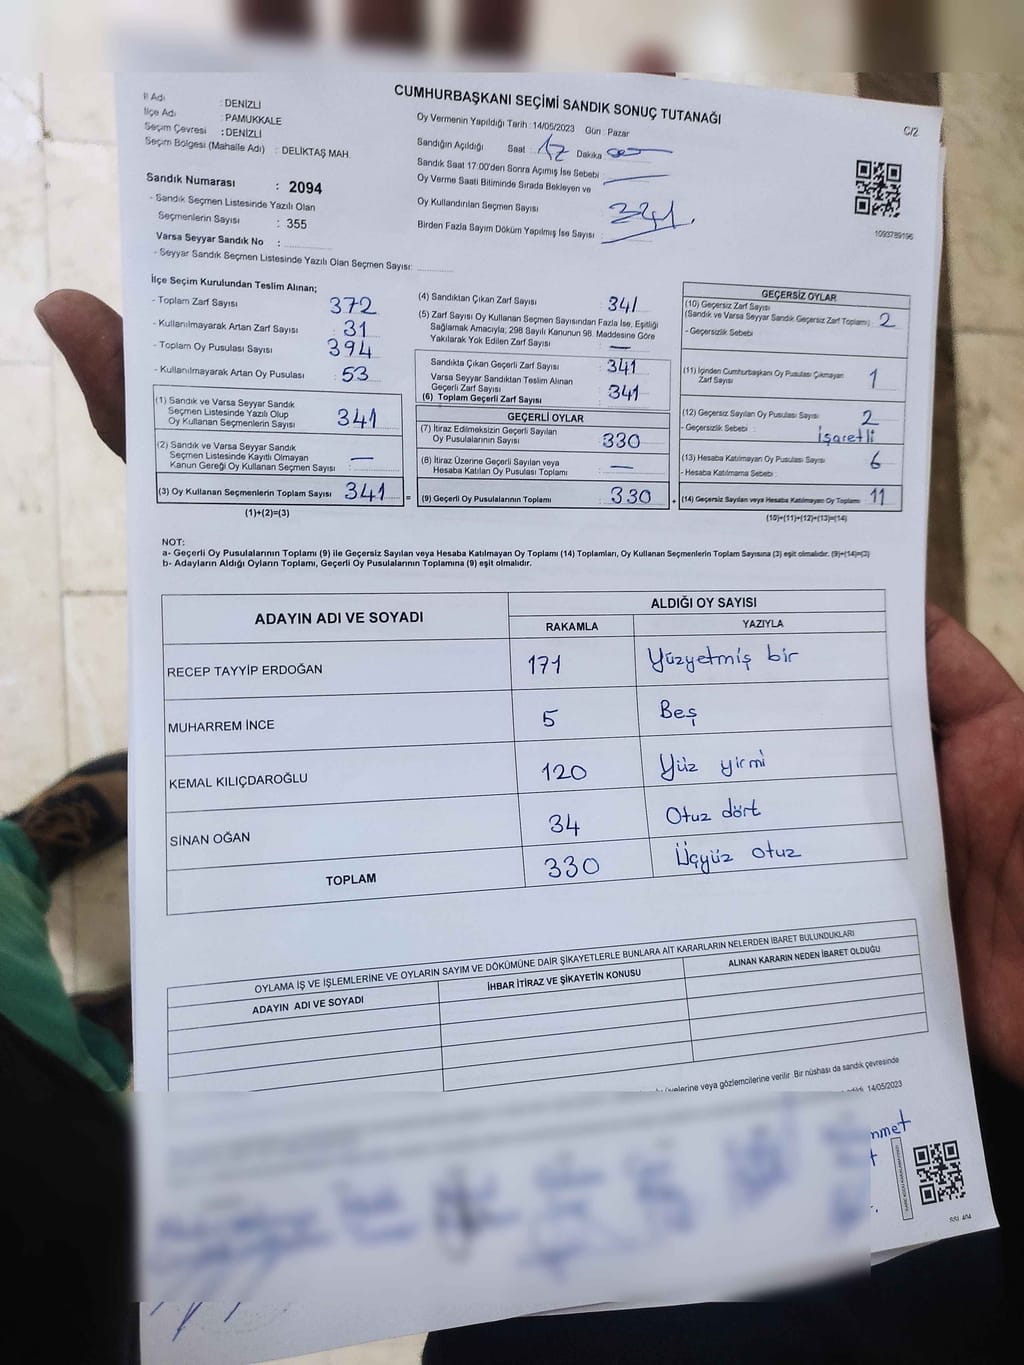 CUMHURBAŞKANI SEÇİMİ SANDIK SONUÇ TUTANAĞI
C/2
İl Adı : DENİZLİ
İlçe Adı : PAMUKKALE
Seçim Çevresi : DENİZLİ
Seçim Bölgesi (Mahalle Adı) : DELİKTAŞ MAH.
Sandık Numarası : 2094
- Sandık Seçmen Listesinde Yazılı Olan
Seçmenlerin Sayısı : 355
Varsa Seyyar Sandık No :
- Seyyar Sandık Seçmen Listesinde Yazılı Olan Seçmen Sayısı:
Oy Vermenin Yapıldığı Tarih : 14/05/2023 Gün : Pazar
Sandığın Açıldığı Saat : 17 Dakika
Sandık Saat 17:00'den Sonra Açımış İse Sebebi :
Oy Verme Saati Bitiminde Sırada Bekleyen ve
Oy Kullandırılan Seçmen Sayısı
Birden Fazla Sayım Döküm Yapılmış İse Sayısı :
341
1093789196
İlçe Seçim Kurulundan Teslim Alınan;
- Toplam Zarf Sayısı : 372
- Kullanılmayarak Artan Zarf Sayısı : 31
- Toplam Oy Pusulası Sayısı : 394
- Kullanılmayarak Artan Oy Pusulası : 53
(1) Sandık ve Varsa Seyyar Sandık
Seçmen Listesinde Yazılı Olup
Oy Kullanan Seçmenlerin Sayısı : 341
(2) Sandık ve Varsa Seyyar Sandık
Seçmen Listesinde Kayıtlı Olmayan
Kanun Gereği Oy Kullanan Seçmen Sayısı : —
(3) Oy Kullanan Seçmenlerin Toplam Sayısı : 341 =
(1)+(2)=(3)
(4) Sandıktan Çıkan Zarf Sayısı : 341
(5) Zarf Sayısı Oy Kullanan Seçmen Sayısından Fazla İse, Eşitliği
Sağlamak Amacıyla, 298 Sayılı Kanunun 98. Maddesine Göre
Yakılarak Yok Edilen Zarf Sayısı : —
Sandıkta Çıkan Geçerli Zarf Sayısı : 341
Varsa Seyyar Sandıktan Teslim Alınan
Geçerli Zarf Sayısı
(6) Toplam Geçerli Zarf Sayısı : 341
GEÇERLİ OYLAR
(7) İtiraz Edilmeksizin Geçerli Sayılan
Oy Pusulalarının Sayısı : 330
(8) İtiraz Üzerine Geçerli Sayılan veya
Hesaba Katılan Oy Pusulası Toplamı : —
(9) Geçerli Oy Pusulalarının Toplamı : 330 +
GEÇERSİZ OYLAR
(10) Geçersiz Zarf Sayısı
(Sandık ve Varsa Seyyar Sandık Geçersiz Zarf Toplamı) : 2
- Geçersizlik Sebebi :
(11) İçinden Cumhurbaşkanı Oy Pusulası Çıkmayan
Zarf Sayısı : 1
(12) Geçersiz Sayılan Oy Pusulası Sayısı : 2
- Geçersizlik Sebebi : İşaretli
(13) Hesaba Katılmayan Oy Pusulası Sayısı : 6
- Hesaba Katılmama Sebebi :
(14) Geçersiz Sayılan veya Hesaba Katılmayan Oy Toplamı : 11
(10)+(11)+(12)+(13)=(14)
NOT:
a- Geçerli Oy Pusulalarının Toplamı (9) ile Geçersiz Sayılan veya Hesaba Katılmayan Oy Toplamı (14) Toplamları, Oy Kullanan Seçmenlerin Toplam Sayısına (3) eşit olmalıdır. (9)+(14)=(3)
b- Adayların Aldığı Oyların Toplamı, Geçerli Oy Pusulalarının Toplamına (9) eşit olmalıdır.
ADAYIN ADI VE SOYADI ALDIĞI OY SAYISI
RAKAMLA YAZIYLA
RECEP TAYYİP ERDOĞAN 171 Yüzyetmiş bir
MUHARREM İNCE 5 Beş
KEMAL KILIÇDAROĞLU 120 Yüz yirmi
SİNAN OĞAN 34 Otuz dört
TOPLAM 330 Üçyüz otuz
OYLAMA İŞ VE İŞLEMLERİNE VE OYLARIN SAYIM VE DÖKÜMÜNE DAİR ŞİKAYETLERLE BUNLARA AİT KARARLARIN NELERDEN İBARET BULUNDUKLARI
ADAYIN ADI VE SOYADI İHBAR İTİRAZ VE ŞİKAYETİN KONUSU ALINAN KARARIN NEDEN İBARET OLDUĞU
üyelerine veya gözlemcilerine verilir. Bir nüshası da sandık çevresinde
14/05/2023